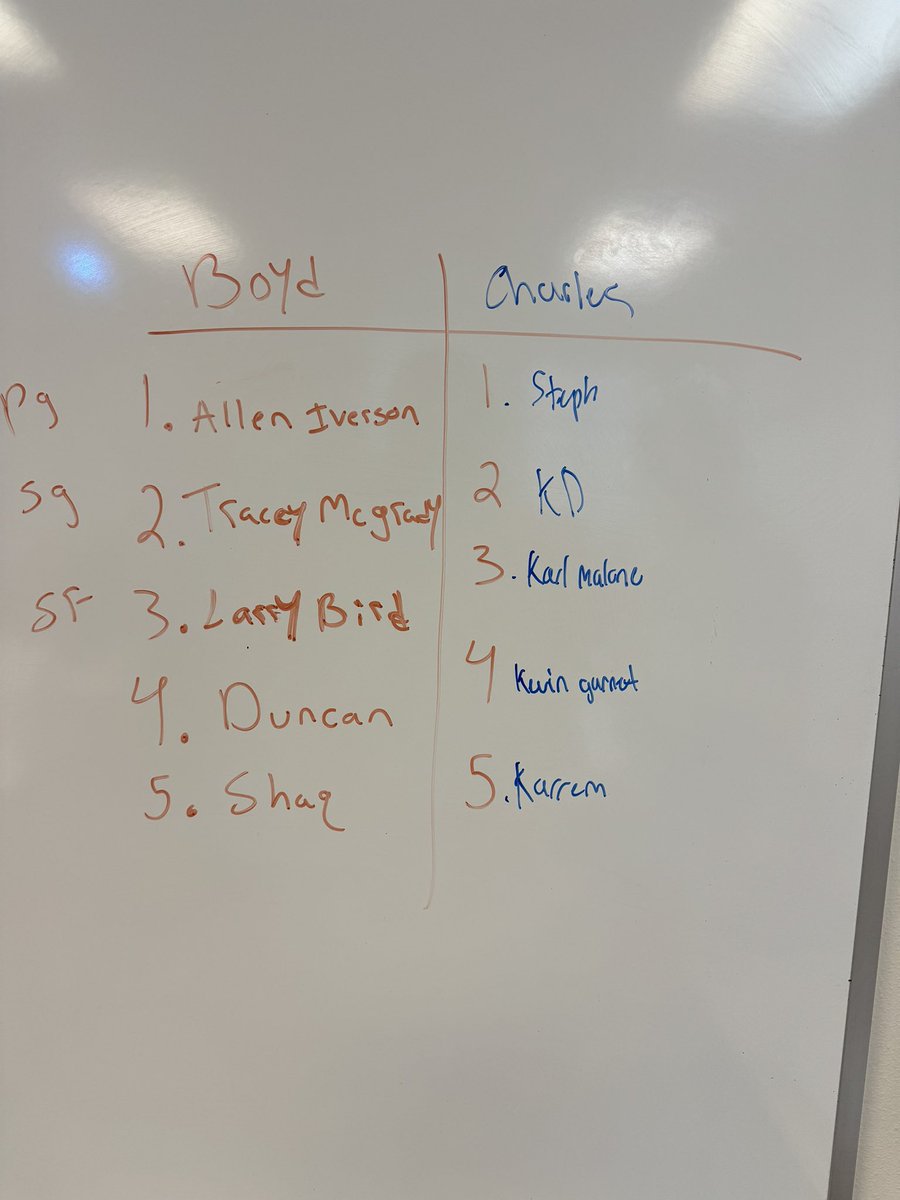 Boyd Charles
Pg 1. Allen Iverson 1. Steph
Sg 2. Tracey Mcgrady 2 KD
SF 3. Larry Bird 3. Karl Malone
4. Duncan 4 Kevin garnet
5. Shaq 5. Karrem